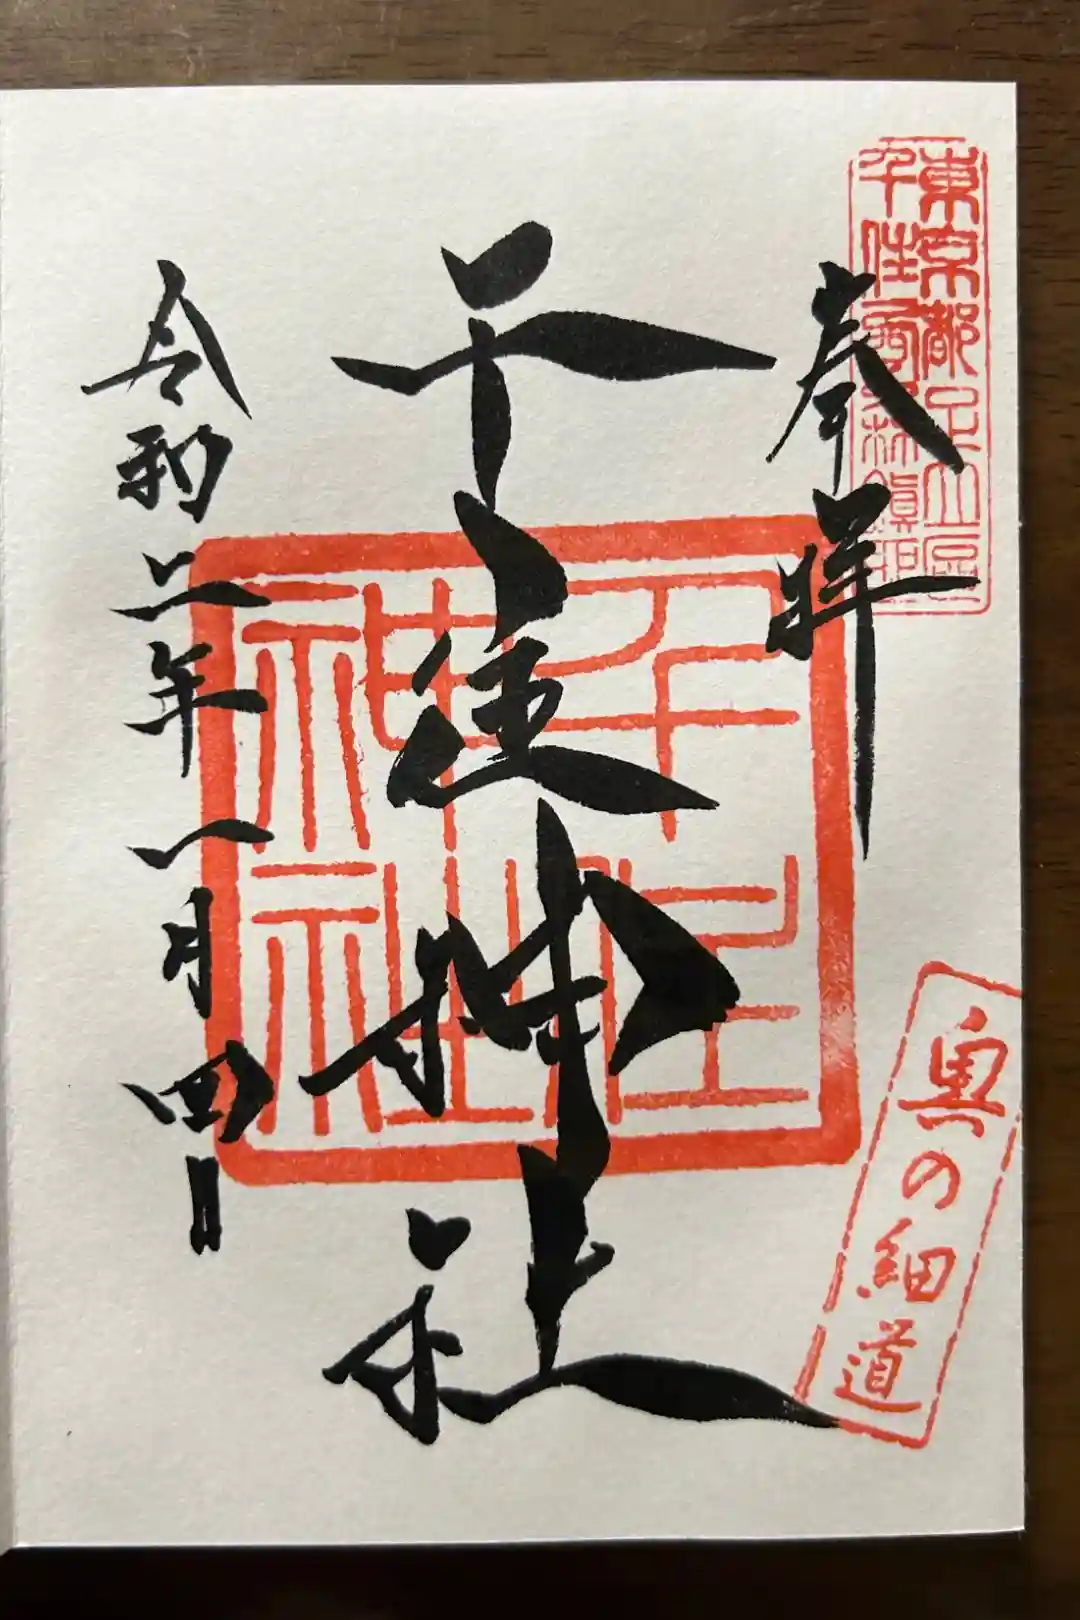 東京都足立区
千住
奉拝
千住神社
千住
神社
令和二年一月四日
奥の細道